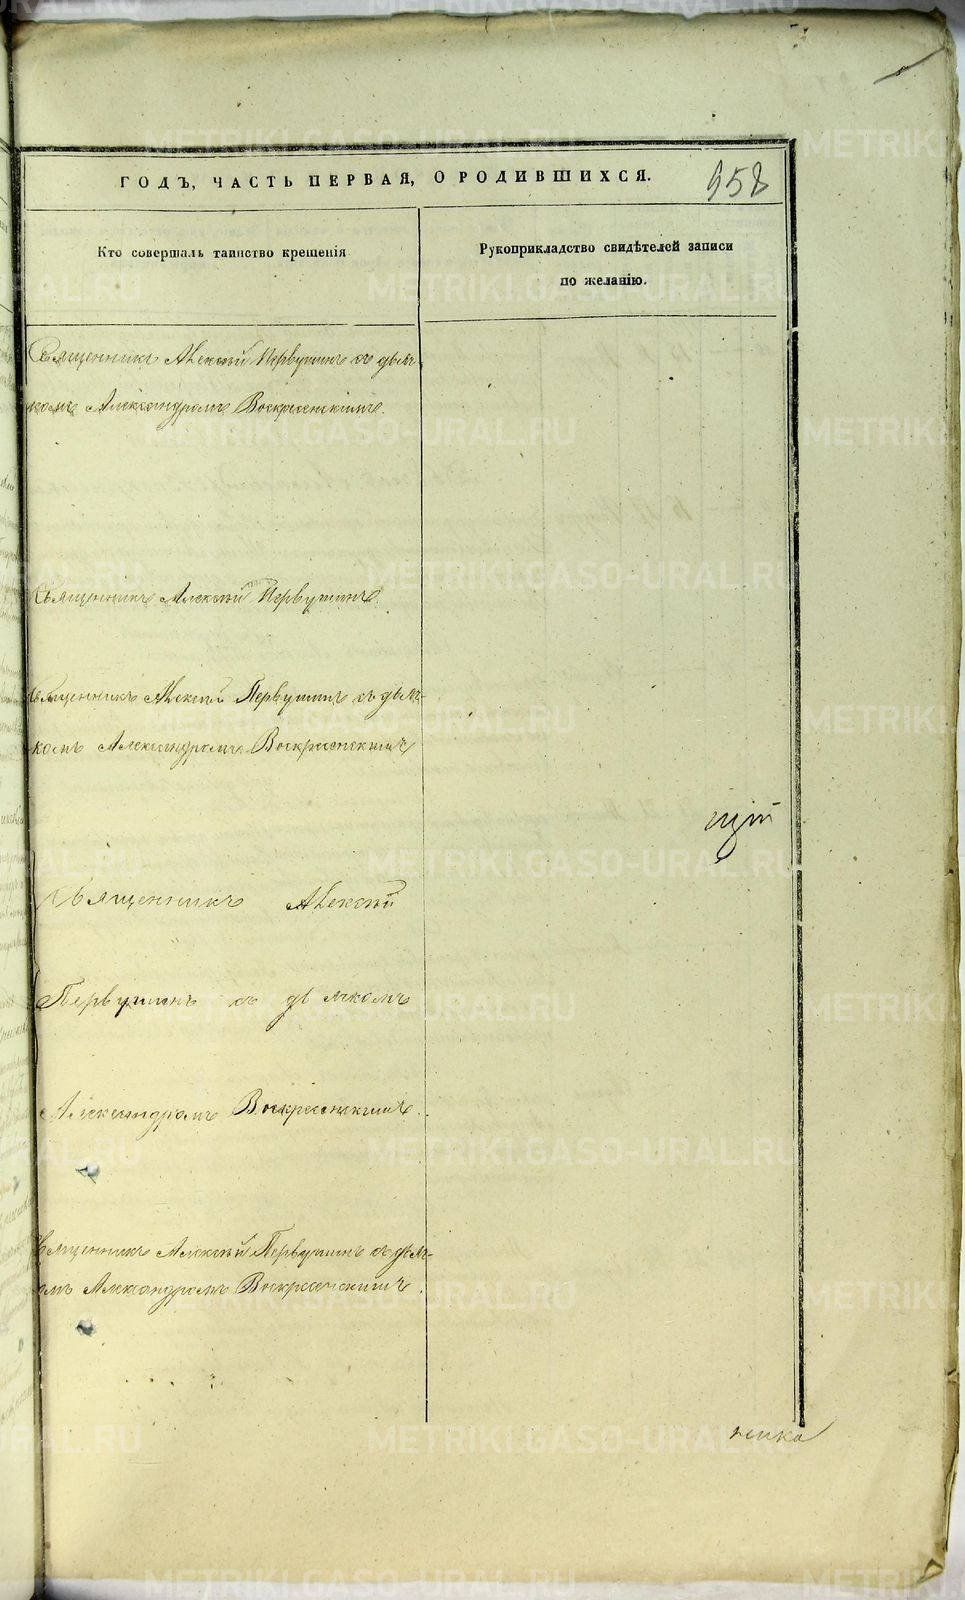 ГОДЪ, ЧАСТЬ ПЕРВАЯ, О РОДИВШИХСЯ.
958
Кто совершалъ таинство крещенія
Рукоприкладство свидѣтелей записи
по желанію.
Священникъ Алексѣй Первушинъ съ дьяч-
комъ Александромъ Воскресенскимъ.
Священникъ Алексѣй Первушинъ.
Священникъ Алексѣй Первушинъ съ дьяч-
комъ Александромъ Воскресенскимъ
Священникъ Алексѣй
Первушинъ съ дьячкомъ
Александромъ Воскресенскимъ.
Священникъ Алексѣй Первушинъ съ дьяч-
комъ Александромъ Воскресенскимъ.
ника
METRIKI.GASO-URAL.RU